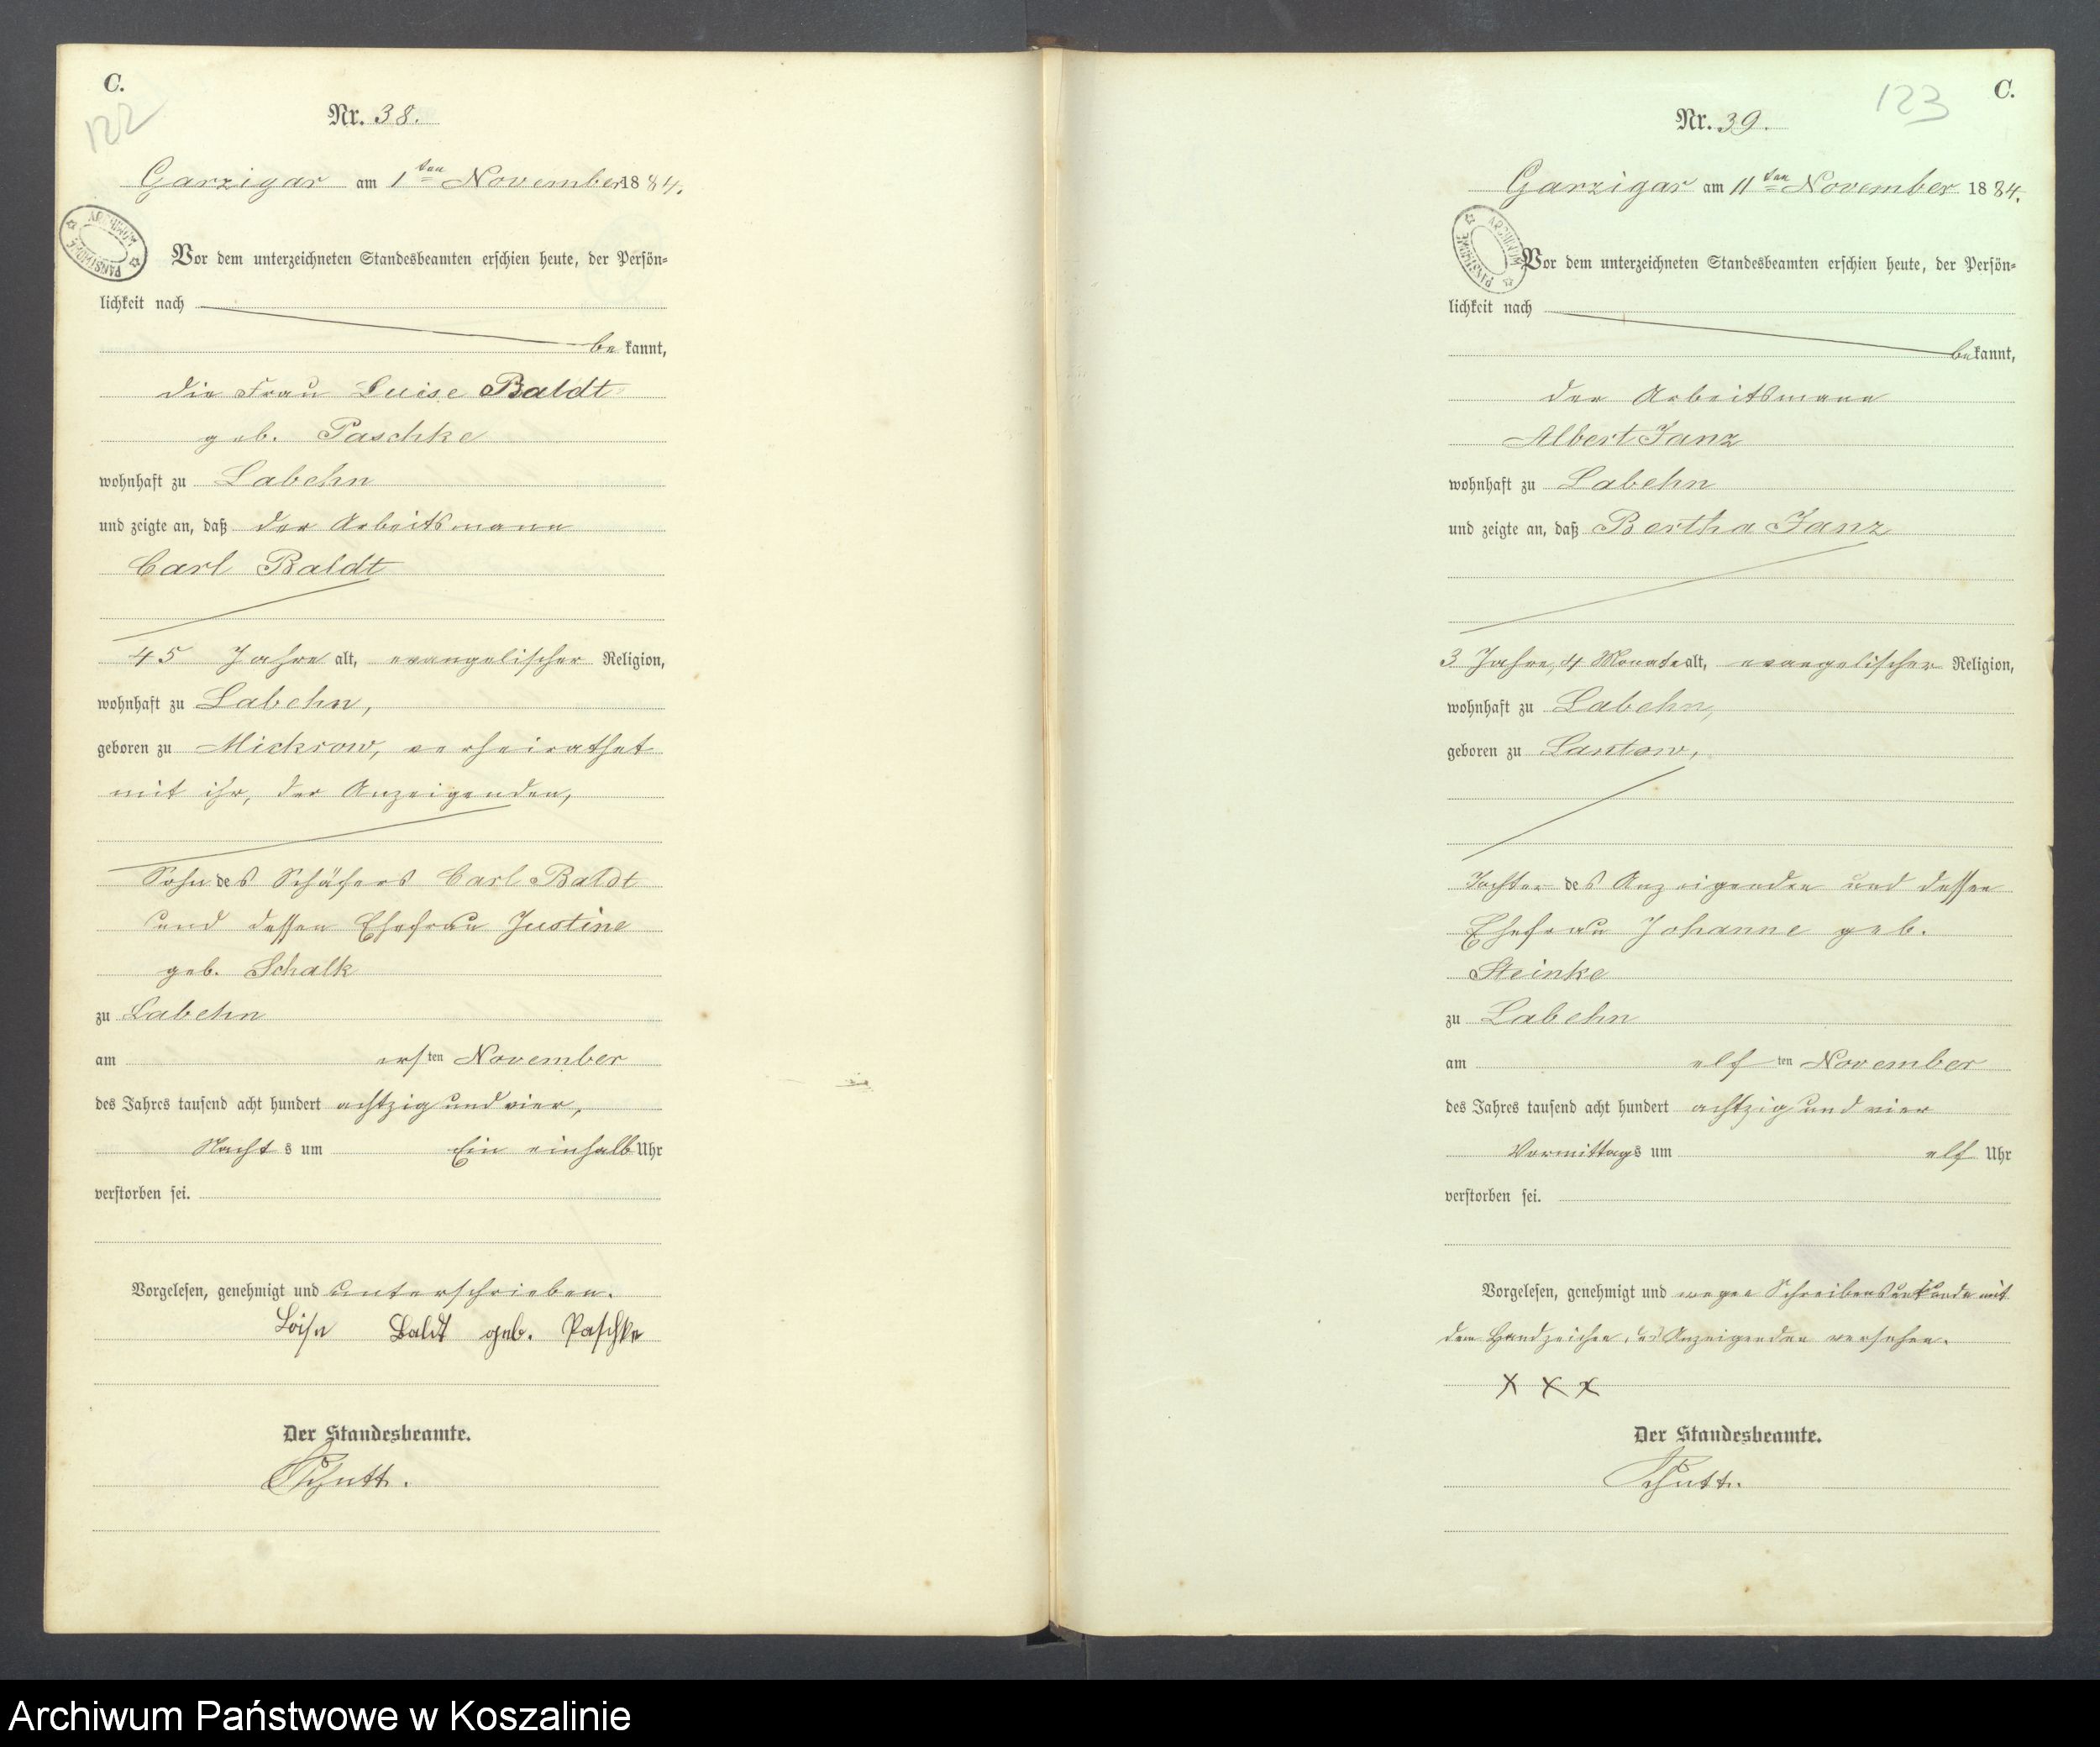 C.
122
Nr. 38.
Garzigar am 1ten November 1884.
ARCHIWUM PAŃSTWOWE
Vor dem unterzeichneten Standesbeamten erschien heute, der Persön-
lichkeit nach
bekannt,
die Frau Luise Baldt
geb. Paschke
wohnhaft zu Labehn
und zeigte an, daß der Arbeitsmann
Carl Baldt
45 Jahre alt, evangelischer Religion,
wohnhaft zu Labehn,
geboren zu Mickrow, verheirathet
mit ihr, der Anzeigenden,
Sohn des Schäfers Carl Baldt
und dessen Ehefrau Justine
geb. Schalk
zu Labehn
am ersten November
des Jahres tausend acht hundert achtzig und vier,
Nachts um Ein einhalb Uhr
verstorben sei.
Vorgelesen, genehmigt und unterschrieben.
Loise Baldt geb. Paschke
Der Standesbeamte.
Schutt.
C.
123
Nr. 39.
Garzigar am 11ten November 1884.
ARCHIWUM PAŃSTWOWE
Vor dem unterzeichneten Standesbeamten erschien heute, der Persön-
lichkeit nach
bekannt,
der Arbeitsmann
Albert Janz
wohnhaft zu Labehn
und zeigte an, daß Bertha Janz
3 Jahre, 4 Monate alt, evangelischer Religion,
wohnhaft zu Labehn,
geboren zu Lantow,
Tochter des Anzeigenden und dessen
Ehefrau Johanne geb.
Steinke
zu Labehn
am elften November
des Jahres tausend acht hundert achtzig und vier
Vormittags um elf Uhr
verstorben sei.
Vorgelesen, genehmigt und wegen Schreibensunkunde mit
dem Handzeichen des Anzeigenden versehen.
x x x
Der Standesbeamte.
Schutt.
Archiwum Państwowe w Koszalinie